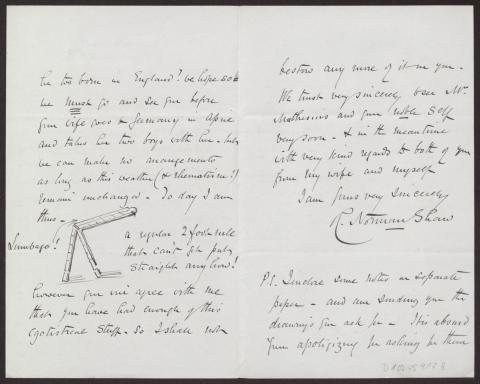 he too born in England? we hope so =
we must go and see you before
your wife goes to Germany in April
and takes her two boys with her - but
we can make no arrangements
as long as this weather (& rheumatism!)
remains unchanged - To day I am
thus -
Lumbago!
a regular 2 foot rule
that can't get put
straight anyhow!
however you will agree with me
that you have had enough of this
egotistical stuff - so I shall not
bestow any more of it on you -
We trust very sincerely to see Mrs
Muthesius and your noble self
very soon - & in the meantime
with very kind regards to both of you
from my wife and myself
I am yours very sincerely
R. Norman Shaw
P.S. I enclose some notes on separate
paper - and am sending you the
drawings you ask for - It is absurd
your apologizing for asking for them